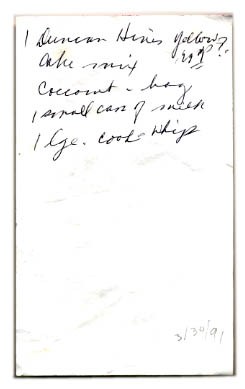 1 Duncan Hines Yellow?
Cake mix Egg
Coconut - bag
1 small can of milk
1 Lge. Cool Whip
3/30/91